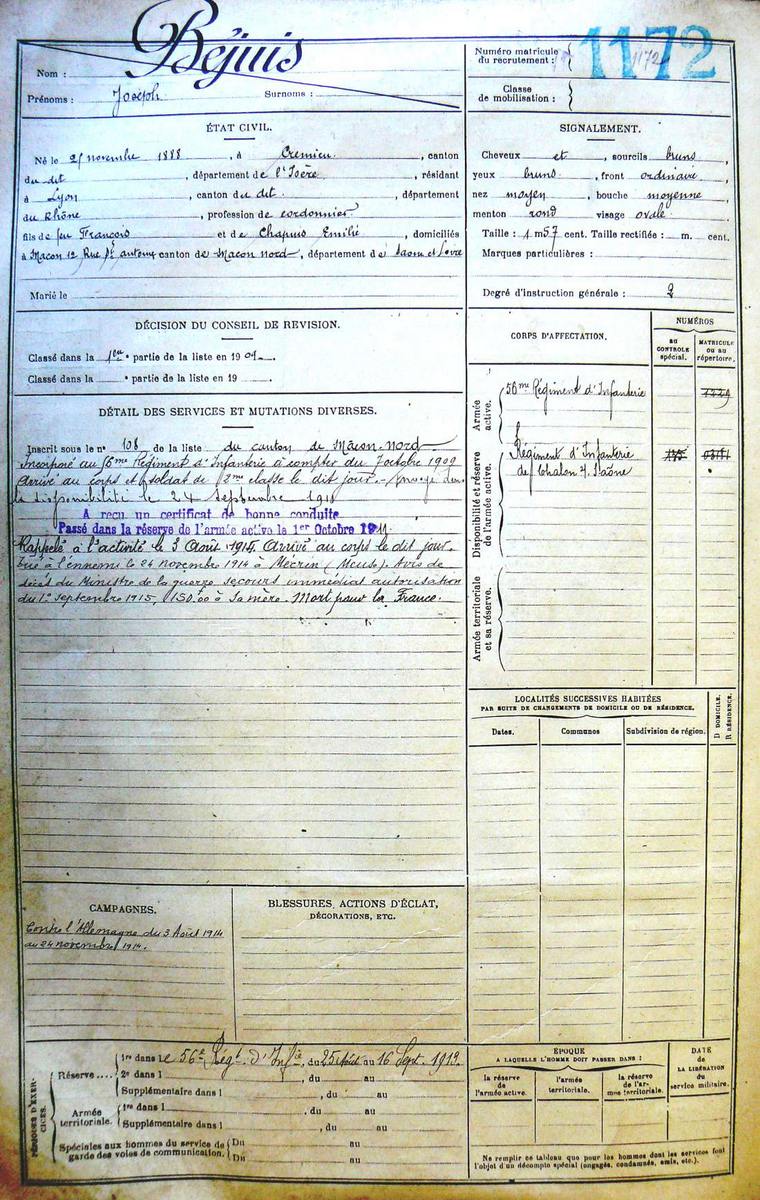 Béjuis
Nom :
Prénoms : Joseph Surnoms :
Numéro matricule
du recrutement : 1172 1172
Classe
de mobilisation :
ÉTAT CIVIL.
Né le 25 novembre 1888, à Crémieu, canton
du dit, département de l'Isère, résidant
à Lyon, canton du dit, département
du Rhône, profession de cordonnier
fils de feu François et de Chapuis Emilie, domiciliés
à Macon 12 Rue St antoine canton de Macon nord, département de Saone et Loire
Marié le
SIGNALEMENT.
Cheveux et, sourcils bruns,
yeux bruns, front ordinaire,
nez moyen, bouche moyenne
menton rond visage ovale.
Taille : 1 m 57 cent. Taille rectifiée : m. cent.
Marques particulières :
Degré d'instruction générale : 2
DÉCISION DU CONSEIL DE REVISION.
Classé dans la 1ere partie de la liste en 1909.
Classé dans la e partie de la liste en 19
DÉTAIL DES SERVICES ET MUTATIONS DIVERSES.
Inscrit sous le n° 108 de la liste du canton de Mâcon-nord
Incorporé au 56me Régiment d'Infanterie à compter du 7 octobre 1909
Arrivé au corps et soldat de 2me classe le dit jour. Envoyé dans
la disponibilité le 24 septembre 1911
A reçu un certificat de bonne conduite
Passé dans la réserve de l'armée active le 1er Octobre 1911
Rappelé à l'activité le 3 Août 1914. Arrivé au corps le dit jour.
tué à l'ennemi le 24 novembre 1914 à Mécrin (Meuse). Avis de
décès du Ministre de la guerre, secours immédiat autorisation
du 1er septembre 1915, 150f00 à sa mère. Mort pour la France.
CORPS D'AFFECTATION.
NUMÉROS
AU CONTROLE spécial.
MATRICULE OU AU répertoire.
Armée active.
56me Régiment d'Infanterie
Disponibilité et réserve de l'armée active.
Régiment d'Infanterie
de Chalon s. Saône
Armée territoriale et sa réserve.
LOCALITÉS SUCCESSIVES HABITÉES
PAR SUITE DE CHANGEMENTS DE DOMICILE OU DE RÉSIDENCE.
Dates. Communes Subdivision de région.
D DOMICILE.
R RÉSIDENCE.
CAMPAGNES.
Contre l'Allemagne du 3 Août 1914
au 24 novembre 1914.
BLESSURES, ACTIONS D'ÉCLAT,
DÉCORATIONS, ETC.
PÉRIODES D'EXERCICES.
Réserve....
1re dans le 56e Régt d'Infie, du 25 Août au 16 Sept. 1913.
2e dans l , du au
Supplémentaire dans l , du au
Armée territoriale.
1re dans l , du au
Supplémentaire dans l , du au
Spéciales aux hommes du service de garde des voies de communication.
Du au
Du au
ÉPOQUE
A LAQUELLE L'HOMME DOIT PASSER DANS :
la réserve de l'armée active.
l'armée territoriale.
la réserve de l'armée territoriale.
DATE
de
LA LIBÉRATION
du
service militaire.
Ne remplir ce tableau que pour les hommes dont les services font
l'objet d'un décompte spécial (engagés, condamnés, omis, etc.).